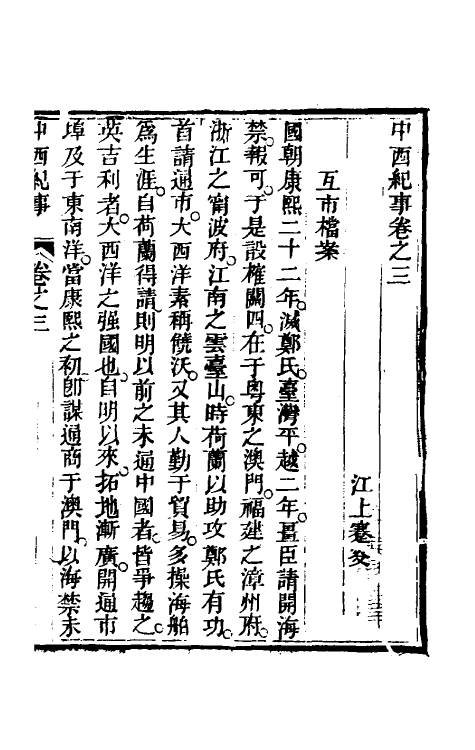 中西紀事卷之三
江上蹇叟
互市檔案
國朝康熙二十二年滅鄭氏臺灣平越二年畺臣請開海
禁報可于是設榷關四在于粵東之澳門福建之漳州府
浙江之甯波府江南之雲臺山時荷蘭以助攻鄭氏有功
首請通市大西洋素稱饒沃又其人勤于貿易多操海舶
爲生涯自荷蘭得請則明以前之未通中國者皆爭趨之
英吉利者大西洋之強國也自明以來拓地漸廣開通市
埠及于東南洋當康熙之初卽謀通商于澳門以海禁未
中西紀事 卷之三